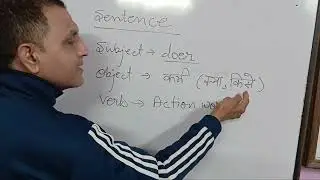 Sentence
Subject → doer
Object → कर्म (क्या, किसे)
Verb → Action wo